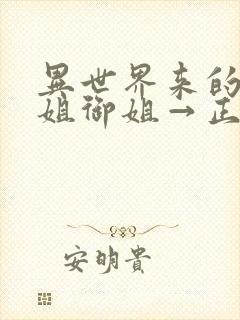 異世界来的
姐御姐→正
安明貴